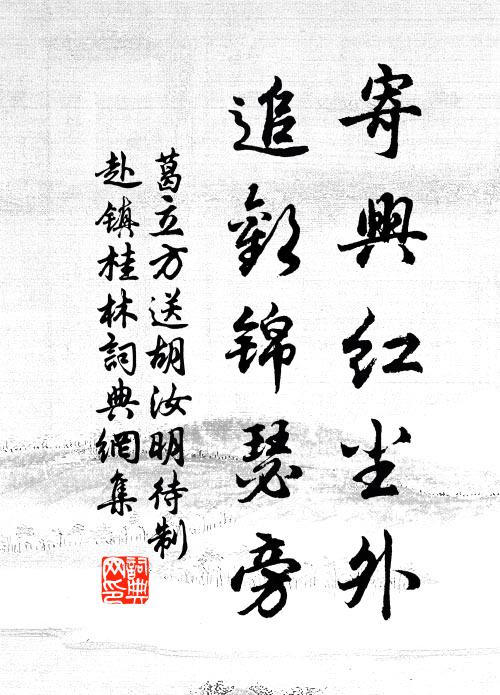 寄興红尘外
追歡锦瑟旁
葛立方送胡汝明待制
赴镇桂林詞典網集
詞典网印